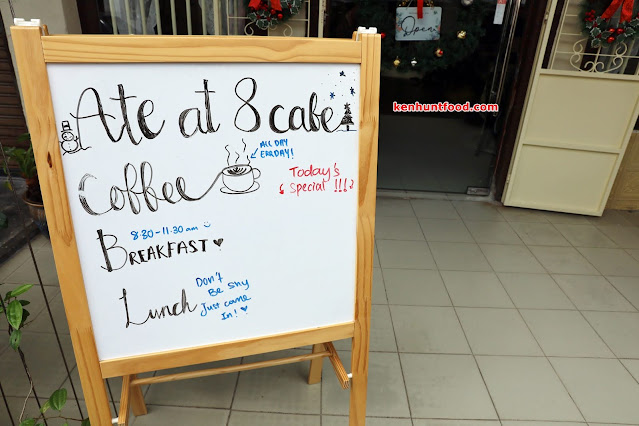 Ate at 8 cafe
Coffee
ALL DAY
ERRDAY!
Today's
special !!!
8.30-11.30 am
BREAKFAST
Lunch
Don't
Be shy
Just came
In!
Open
kenhuntfood.com